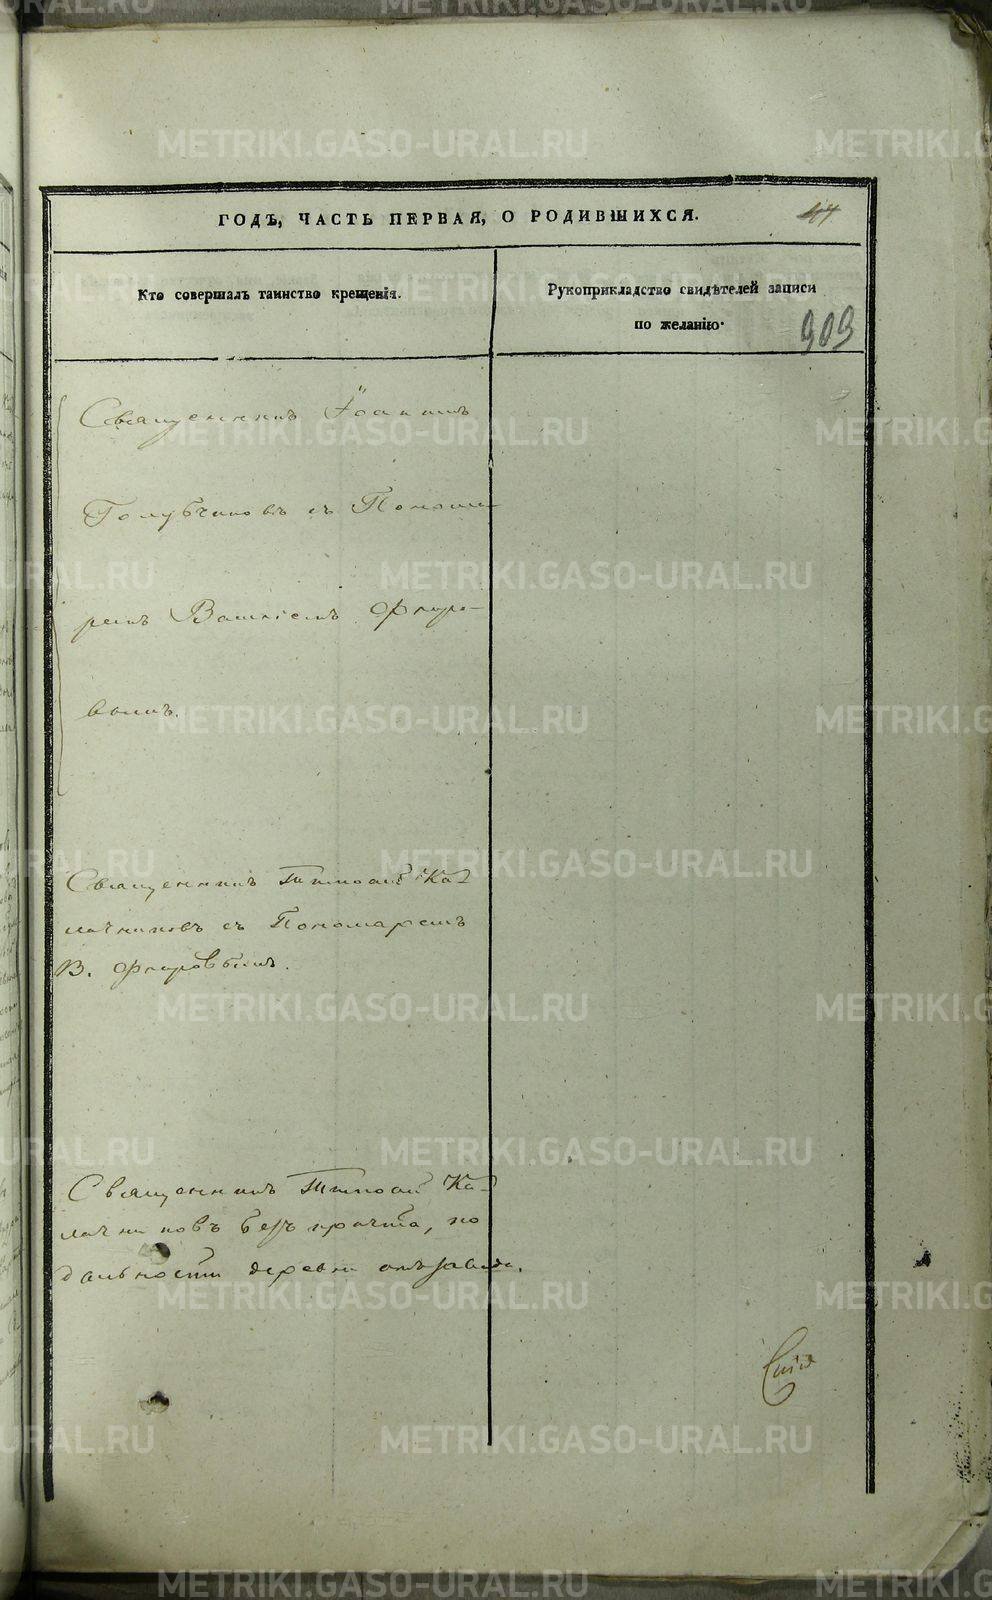 ГОДЪ, ЧАСТЬ ПЕРВАЯ, О РОДИВШИХСЯ.
44
Кто совершалъ таинство крещенія.
Рукоприкладство свидѣтелей записи
по желанію.
909
Священникъ Іоаннъ
Голубчиковъ съ Понома-
ремъ Василіемъ Флоро-
вымъ.
Священникъ Тимоѳей Ка-
лачниковъ съ Пономаремъ
В. Флоровымъ.
Священникъ Тимоѳей Ка-
лачниковъ безъ причта, по
дальности деревни отъ завода.
METRIKI.GASO-URAL.RU